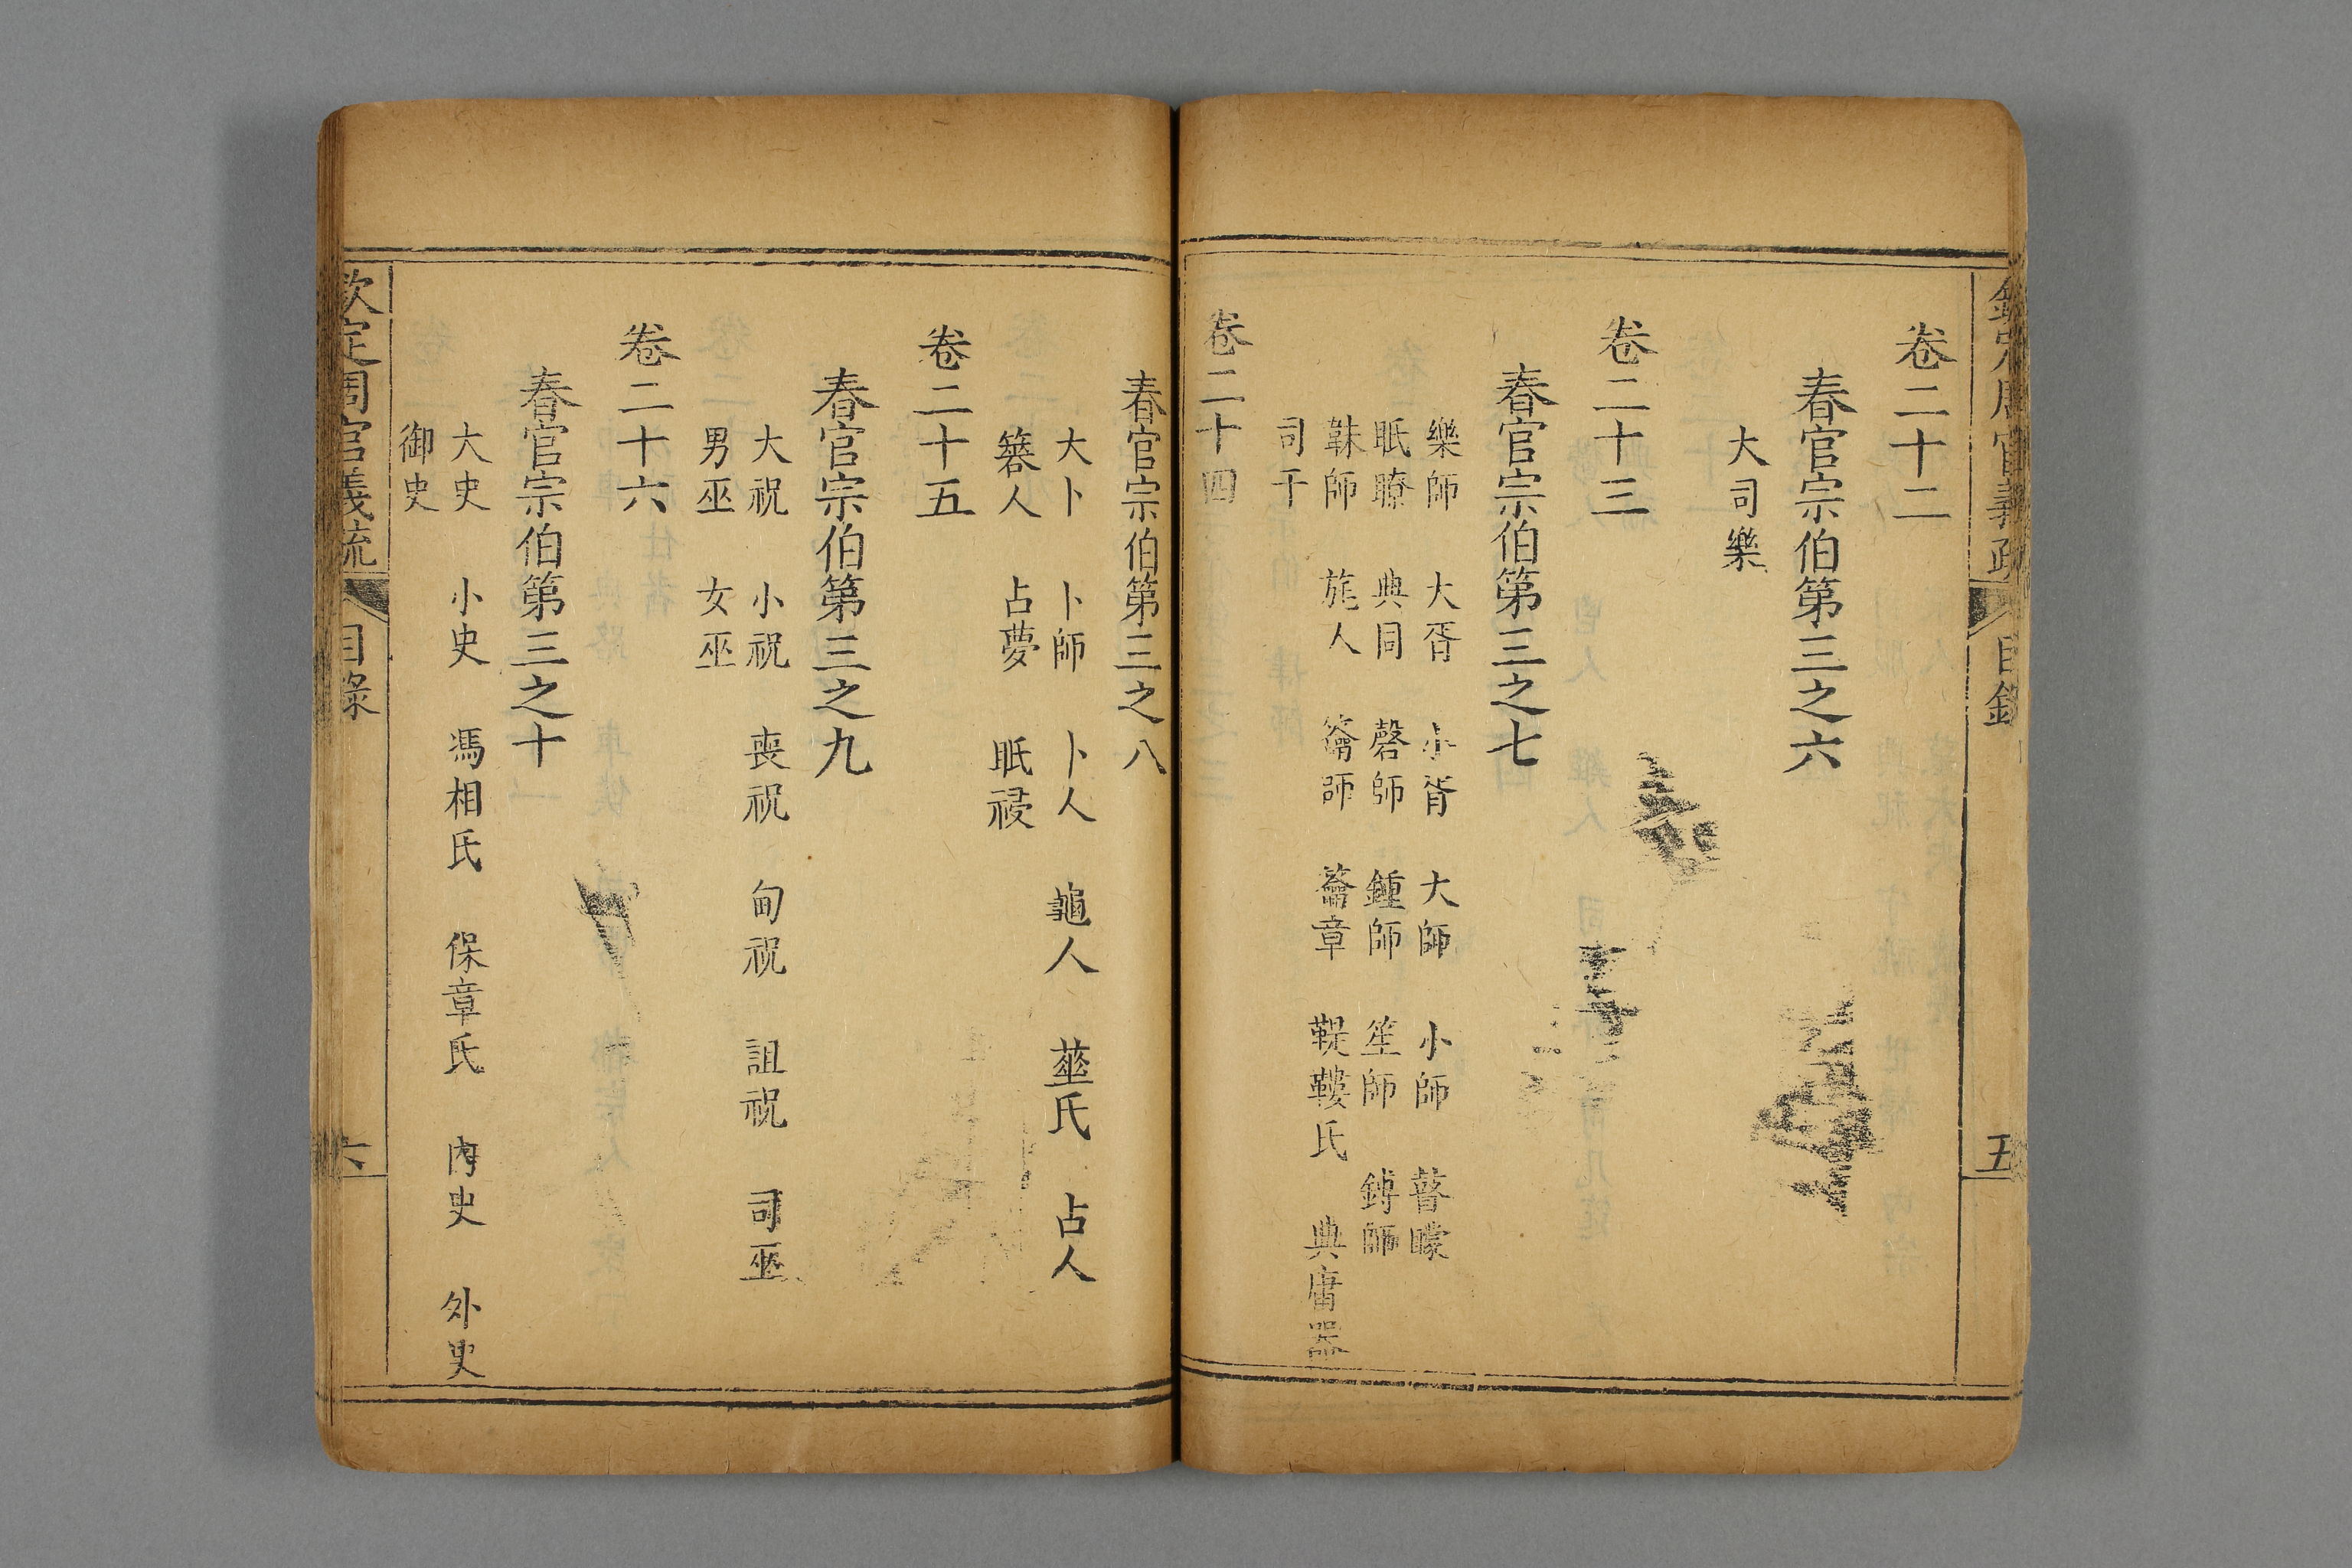 欽定周官義疏 目錄 五
卷二十二
春官宗伯第三之六
大司樂
卷二十三
春官宗伯第三之七
樂師 大胥 小胥 大師 小師 瞽矇
眡瞭 典同 磬師 鍾師 笙師 鎛師
韎師 旄人 籥師 籥章 鞮鞻氏 典庸器
司干
卷二十四
春官宗伯第三之八
大卜 卜師 卜人 龜人 菙氏 占人
簭人 占夢 眡祲
卷二十五
春官宗伯第三之九
大祝 小祝 喪祝 甸祝 詛祝 司巫
男巫 女巫
卷二十六
春官宗伯第三之十
大史 小史 馮相氏 保章氏 內史 外史
御史
欽定周官義疏 目錄 六